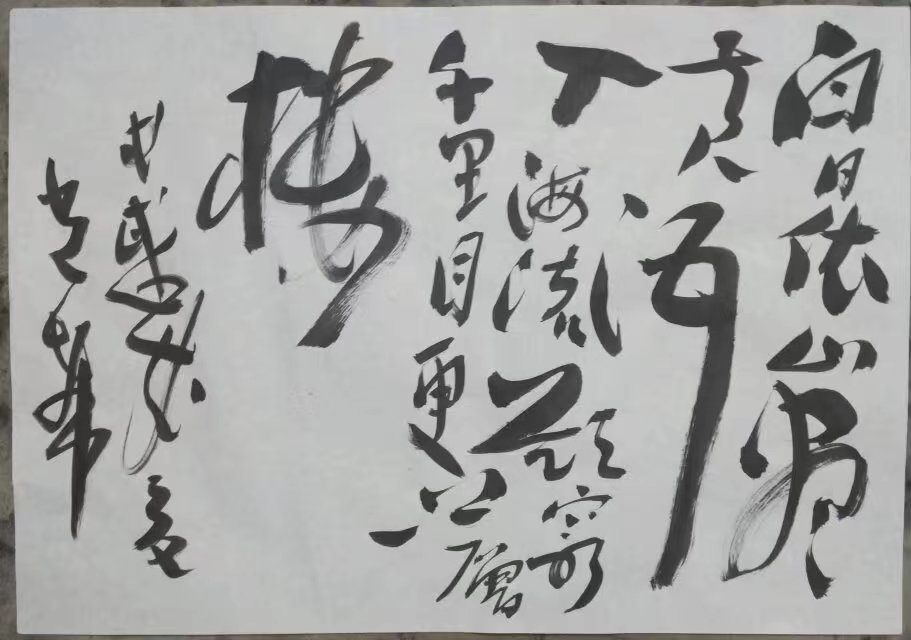 白日依山盡
黄河
入海流欲窮
千里目更上一層
樓